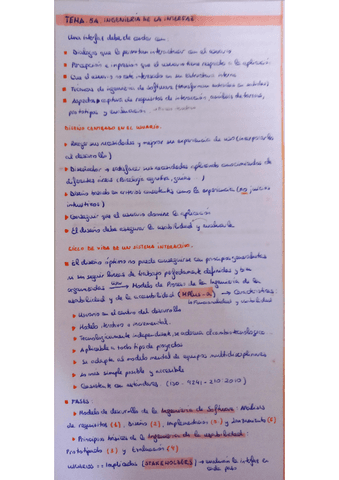 TEMA 5A. INGENIERÍA DE LA INTERFAZ
Una interfaz debe de contar con:
Diálogos que le permitan interactuar con el usuario
Percepción e impresión que el usuario tiene respecto a la aplicación
Que el usuario no esté interesado en su estructura interna
Técnicas de ingeniería de software
Aspectos captura de requisitos de interacción, análisis de tareas,
prototipos y evaluación.
DISEÑO CENTRADO EN EL USUARIO.
Recoge sus necesidades y mejorar su experiencia de uso (incorporarlos
al desarrollo)
Diseñador → satisfacer sus necesidades aplicando conocimientos de
diferentes áreas (Psicología
Diseño basado en criterios como la experiencia (no
intuitivos)
Conseguir que el usuario domine la aplicación
El diseño debe asegurar la usabilidad y
CICLO DE VIDA DE UN SISTEMA INTERACTIVO.
El diseño óptimo no puede conseguirse con principios generalistas
si no seguir líneas de trabajo perfectamente definidas y
organizadas Modelo de Proceso de la Ingeniería de la
usabilidad y de la accesibilidad (MPIu+a) → Características:
Usuario en el centro del desarrollo
Modelo iterativo e incremental.
Tecnológicamente independiente
Aplicable a todo tipo de proyectos
Se adapta al modelo mental de equipos multidisciplinares
Lo más simple posible y accesible
Consistente con estándares (ISO - 9241 - 210 2010)
FASES:
Modelo de desarrollo de la Ingeniería de Software: Análisis
de requisitos (6), Diseño (2), Implementación
Principios básicos de la Ingeniería de la usabilidad:
Prototipado y Evaluación
usuarios → Implicados (STAKEHOLDERS) → evaluarán la interfaz en
cada fase